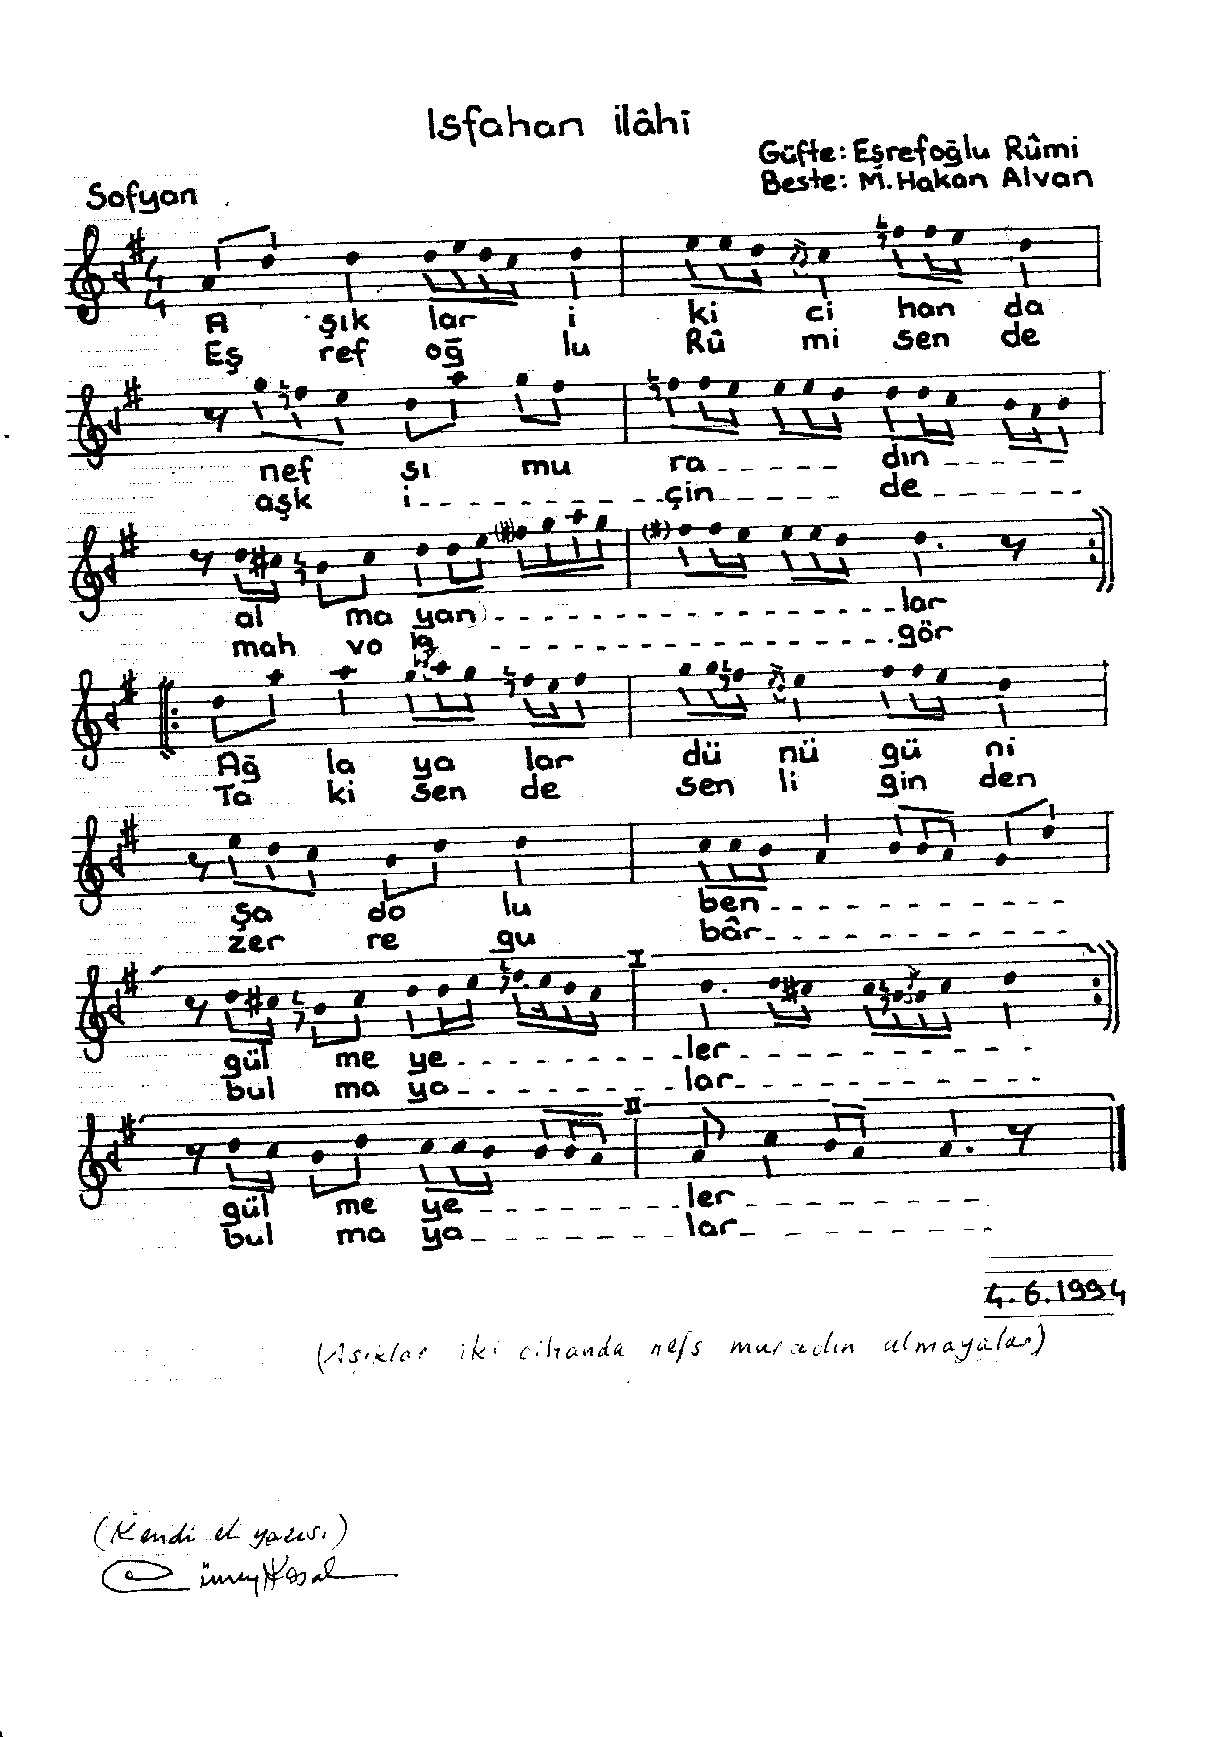 Isfahan ilâhi
Güfte: Eşrefoğlu Rûmi
Beste: M. Hakan Alvan
Sofyan
4
4
A şık lar i ki ci han da
Eş ref oğ lu Rû mi sen de
nef si mu ra------ dın-----
aşk i----------çin------ de-------
al ma yan)---------------lar
mah vo la ---------------gör
Ağ la ya lar dü nü gü ni
Ta ki sen de sen li gin den
şa do lu ben-----------
zer re gu bâr-----------
I
gül me ye---------ler-----------
bul ma ya---------lar-----------
II
gül me ye--------ler---------
bul ma ya--------lar----------
4.6.1994
(Aşıklar iki cihanda nefs muradın almayalar)
(Kendi el yazısı)